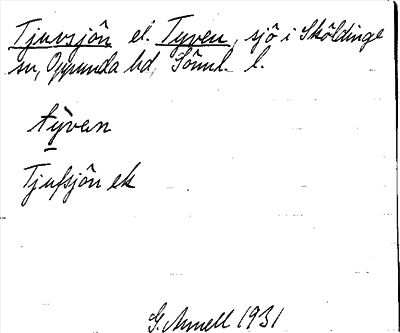 Tjuvsjön el. Tyven, sjö i Sköldinge
sn, Oppunda hd, Söml. l.
tỳvan
Tjufsjön ek
G. Arnell 1931